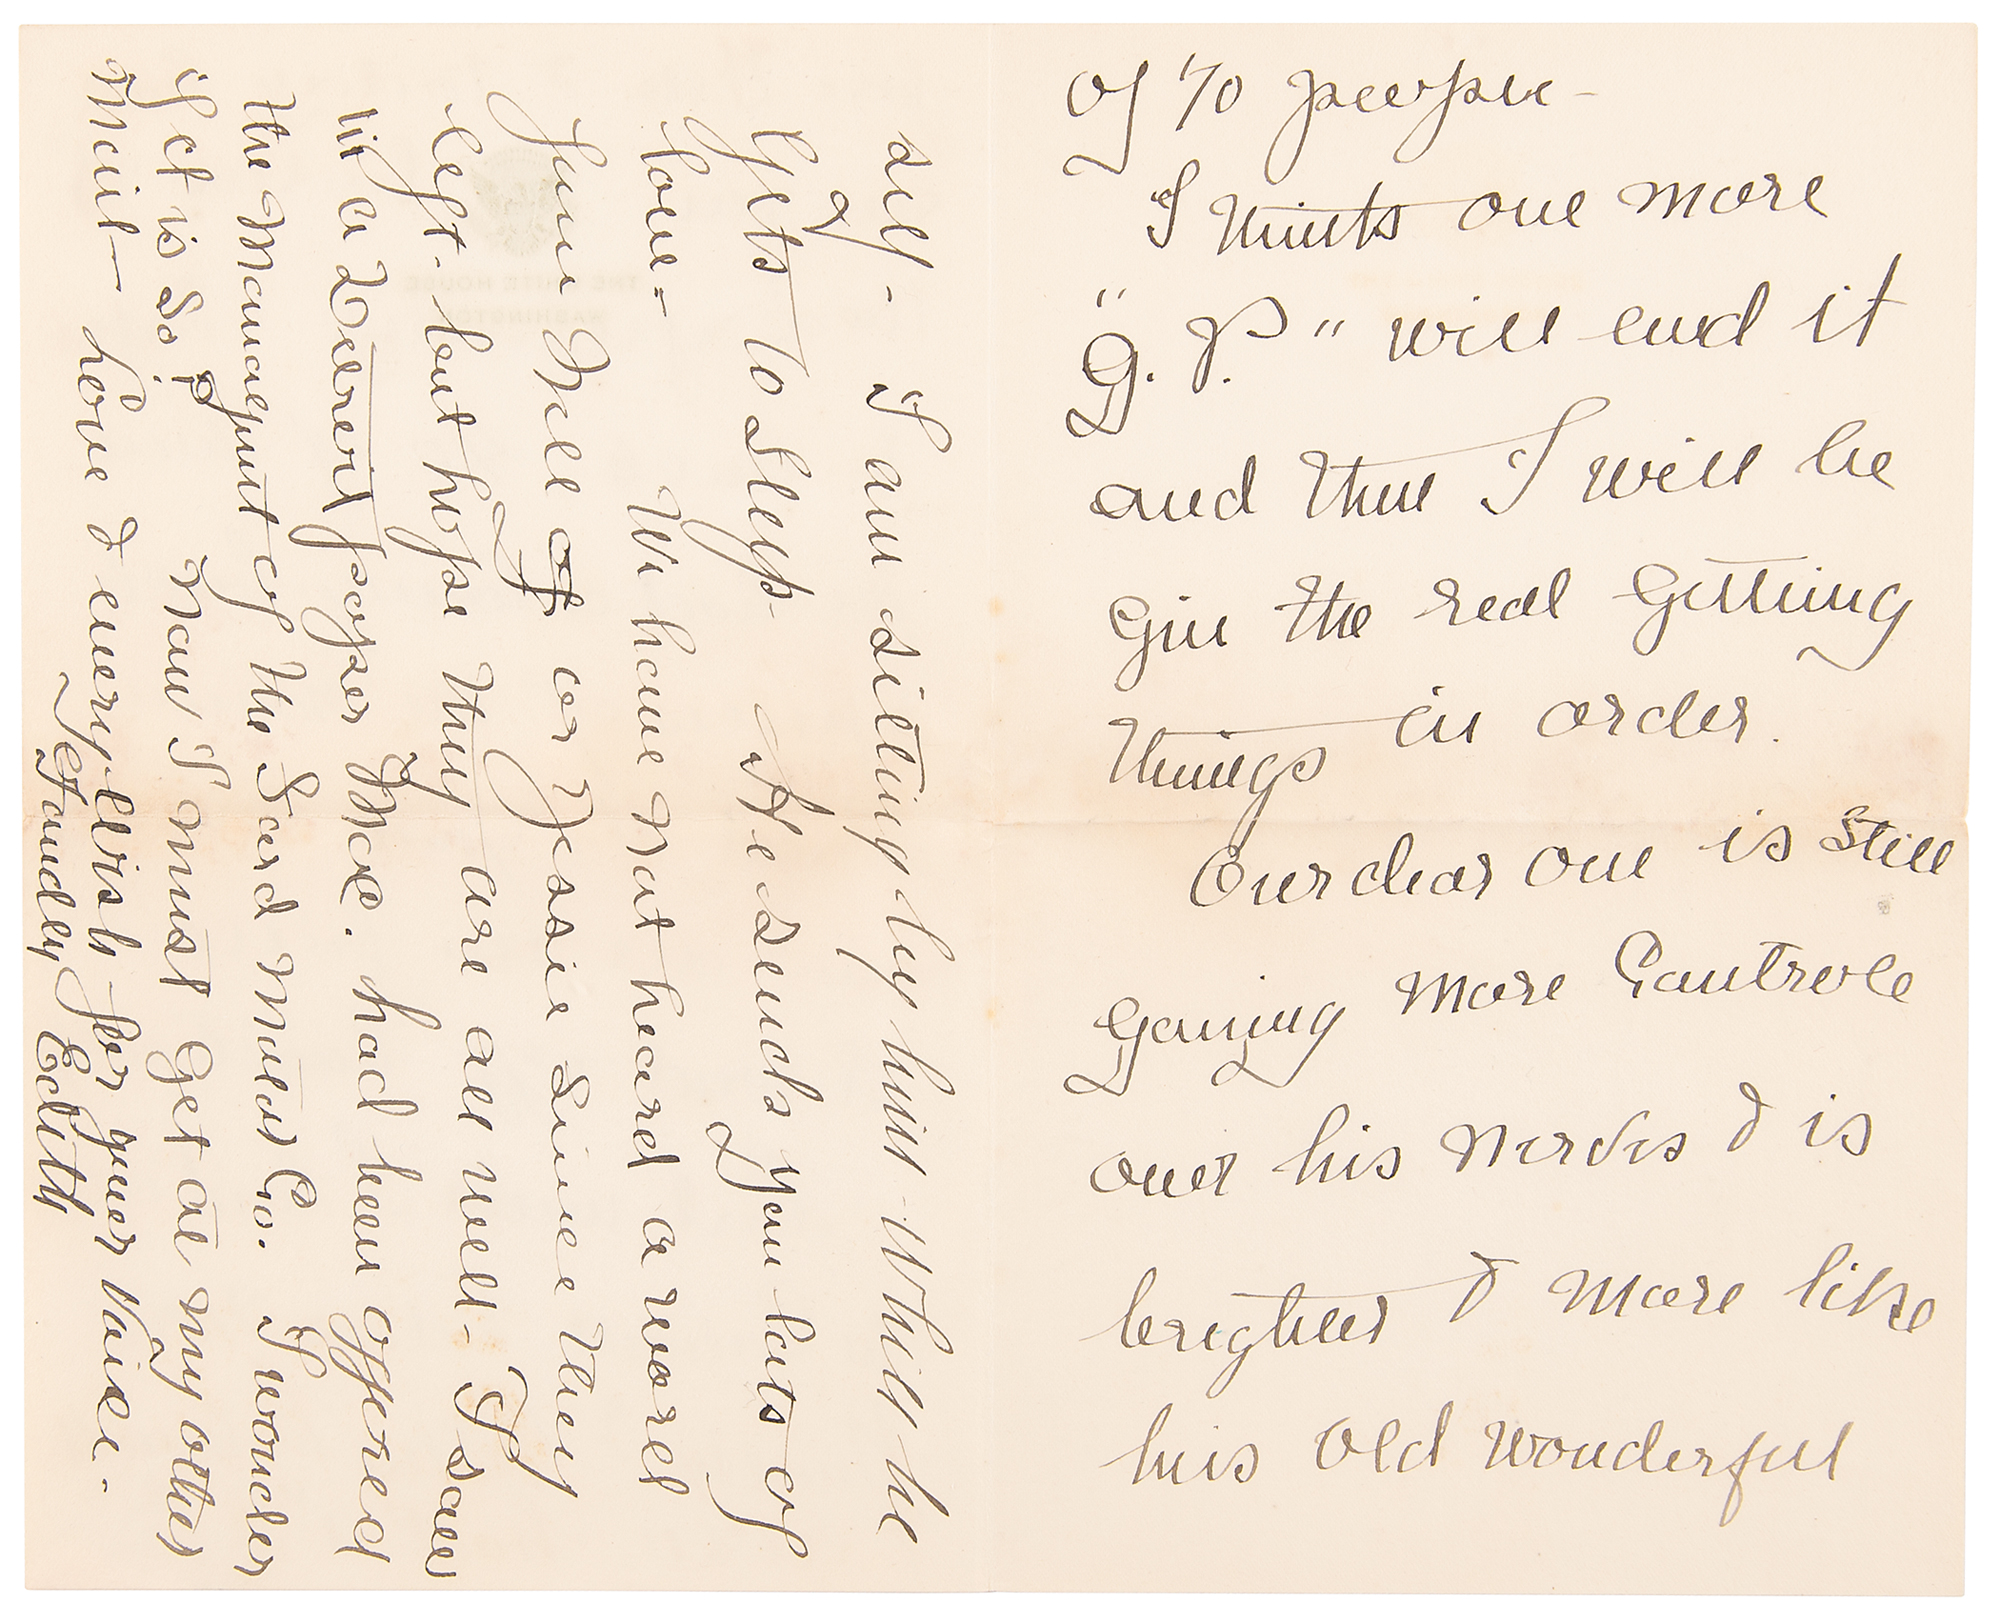 of 70 people -
I think one more
"G. P." will end it
and then I will be
gin the real getting
things in order.
Our dear one is still
gaining more controle
over his nerves & is
brighter & more like
his old wonderful
self - I am sitting by him while he
gets to sleep - He sends you lots of
love - We have not heard a word
from Nell or Jessie since they
left - but hope they are all well - I saw
in a Detroit paper Mac. had been offered
the management of the Ford Motor Co. I wonder
if it is so? Now I must get at my other
mail - Love & every wish for your Voice -
Fondly Edith
THE WHITE HOUSE
WASHINGTON